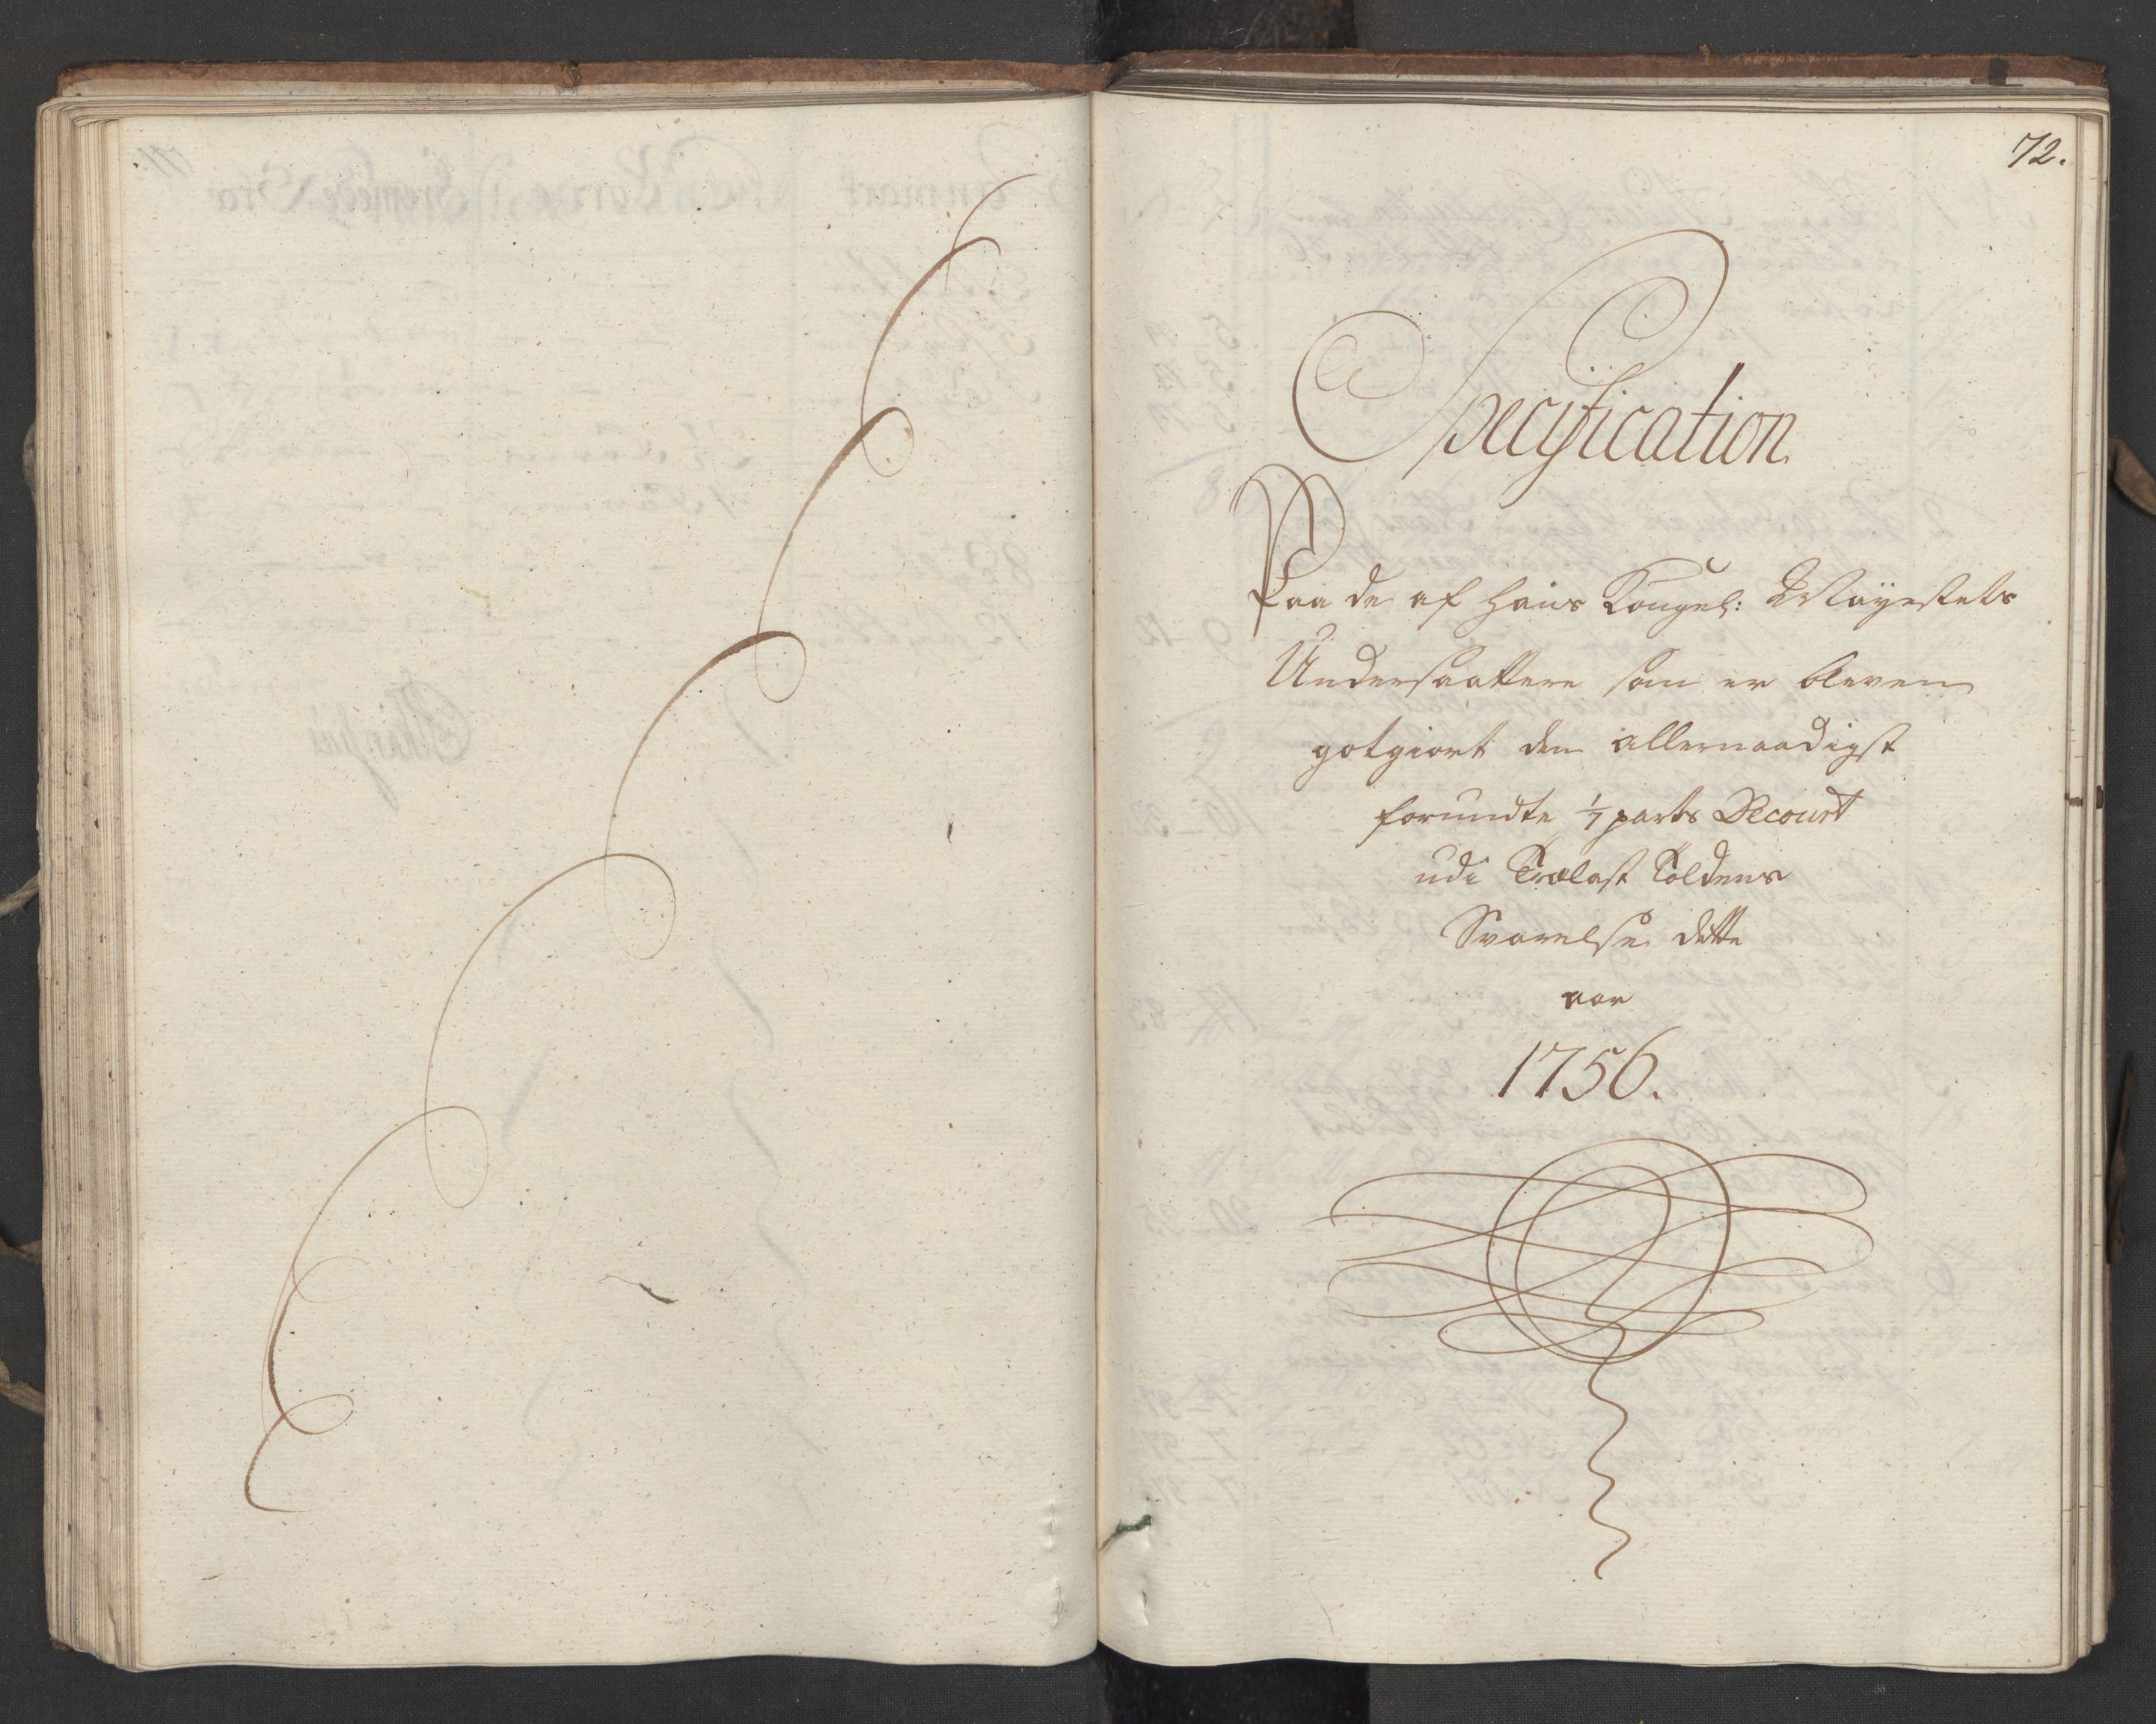 72.
Specification
Paa de af Hans Kongel: Mayestets
Undersaattere som er bleven
gotgiort den allernaadigst
forundte 1/7 parts Decourt
udi Trælast Toldens
Svarelse dette
aar
1756.